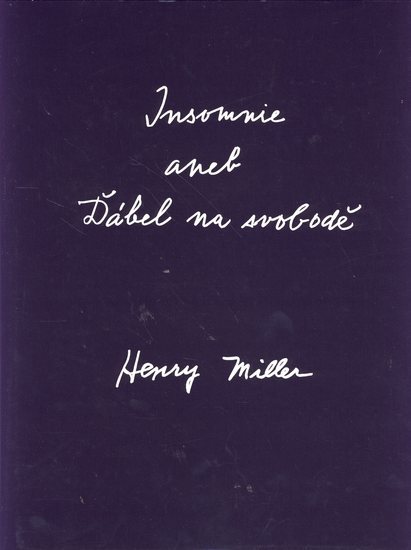 Insomnie
aneb
Ďábel na svobodě
Henry Miller